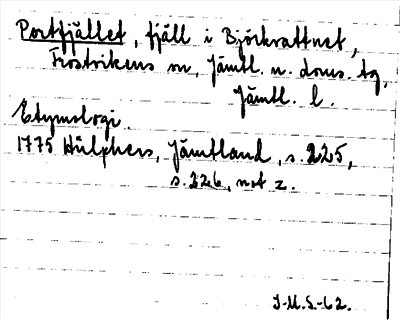 Portfjället, fjäll i Björkvattnet,
Frostvikens sn, Jämtl. n. doms. tg,
Jämtl. l.
Etymologi
1775 Hülphers, Jämtland, s. 225,
s. 226, not z.
J-M.S.-62.